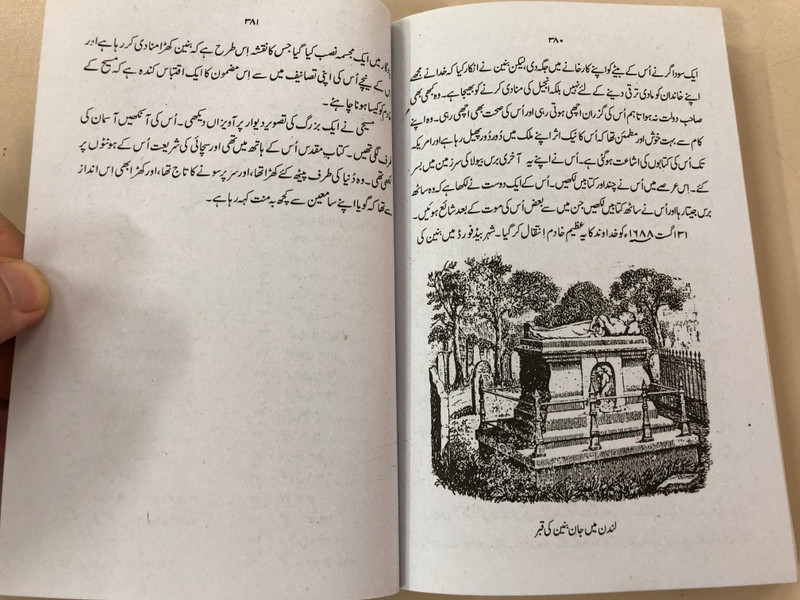 ۳۸۰
ایک سوداگر نے اُس کے بیٹے کو اپنے کارخانے میں جگہ دی لیکن بنین نے انکار کیا کہ خدا نے مجھے
اپنے خاندان کو مادی ترقی دینے کے لئے نہیں بلکہ انجیل کی منادی کرنے کو بھیجا ہے۔ وہ کبھی بھی
صاحبِ دولت نہ ہوا تاہم اُس کی گزران اچھی ہوتی رہی اور اُس کی صحت بھی اچھی رہی۔ وہ اپنے
کام سے بہت خوش اور مطمئن تھا کہ اُس کا نیک اثر اپنے ملک میں دُور دُور پھیل رہا ہے اور امریکہ
تک اُس کی کتابوں کی اشاعت ہو گئی ہے۔ اُس نے اپنے یہ آخری برس بیولا کی سرزمین میں بسر
کئے۔ اِس عرصے میں اُس نے چند اور کتابیں لکھیں۔ اُس کے ایک دوست نے لکھا ہے کہ وہ ساٹھ
برس جیتا رہا اور اُس نے ساٹھ کتابیں لکھیں جن میں سے بعض اُس کی موت کے بعد شائع ہوئیں۔
۳۱ اگست ۱۶۸۸ء کو خداوند کا یہ عظیم خادم اِنتقال کر گیا۔ شہر بیڈفورڈ میں بنین کی
لندن میں جان بنین کی قبر
۳۸۱
یادگار میں ایک مجسمہ نصب کیا گیا جس کا نقشہ اِس طرح ہے کہ بنین کھڑا منادی کر رہا ہے اور
کے نیچے اُس کی اپنی تصانیف میں سے اِس مضمون کا ایک اقتباس کندہ ہے کہ مسیح کے
خادم کو کیسا ہونا چاہئے۔
مسیحی نے ایک بزرگ کی تصویر دیوار پر آویزاں دیکھی۔ اُس کی آنکھیں آسمان کی
طرف لگی تھیں۔ کتابِ مقدس اُس کے ہاتھ میں تھی اور سچائی کی شریعت اُس کے ہونٹوں پر
لکھی تھی۔ وہ دُنیا کی طرف پیٹھ کئے کھڑا تھا، اور سر پر سونے کا تاج تھا، اور کھڑا بھی اُس انداز
سے تھا کہ گویا اپنے سامعین سے کچھ بہ منت کہہ رہا ہے۔